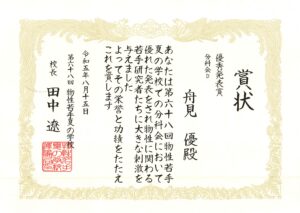 賞状
優秀発表賞
分科会D
舟見 優殿
あなたは第六十八回物性若手
夏の学校での分科会において
優れた発表をされ物性に関わる
若手研究者たちに大きな刺激を
与えました
よってその栄誉と功績をたたえ
これを賞します
令和五年八月十五日
第六十八回 物性若手夏の学校
校長 田中 遼